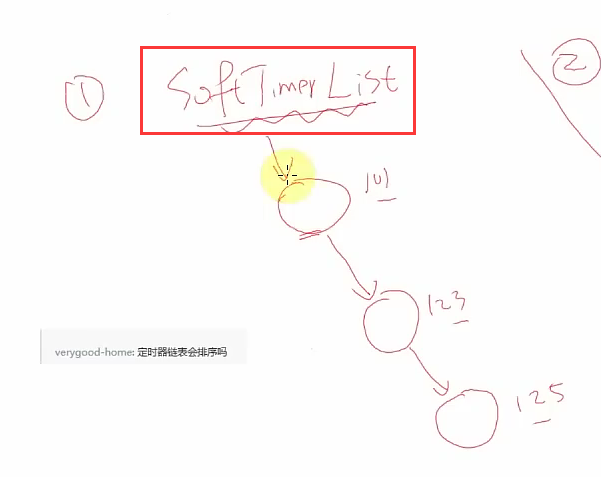 ① SoftTimerList ②
101
123
verygood-home: 定时器链表会排序吗
125